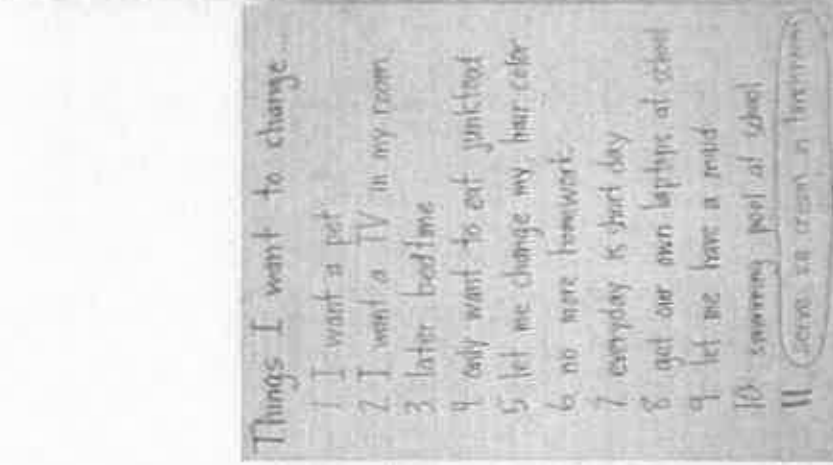 Things I want to change...
1 I want a pet
2 I want a TV in my room
3 later bedtime
4 only want to eat junkfood
5 let me change my hair color
6 no more homework
7 everyday is short day
8 get our own laptops at school
9 let me have a maid
10 swimming pool at school
11 serve ice cream in